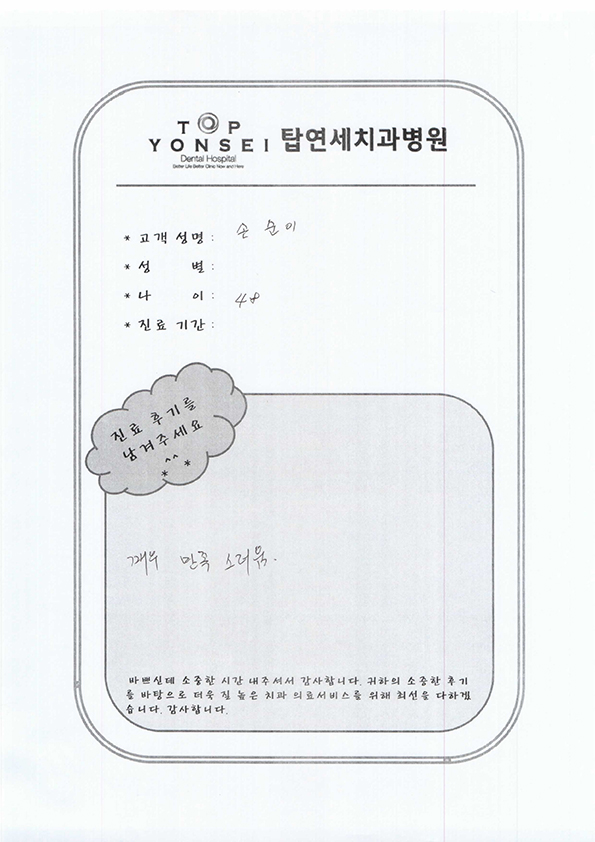 TOP
YONSEI 탑연세치과병원
Dental Hospital
Better Life Better Clinic Now and Here
* 고객 성명 : 손 순이
* 성 별 :
* 나 이 : 48
* 진료 기간 :
진료 후기를
남겨주세요
^^
* *
매우 만족 스러움.
바쁘신데 소중한 시간 내주셔서 감사합니다. 귀하의 소중한 후기
를 바탕으로 더욱 질 높은 치과 의료서비스를 위해 최선을 다하겠
습니다. 감사합니다.